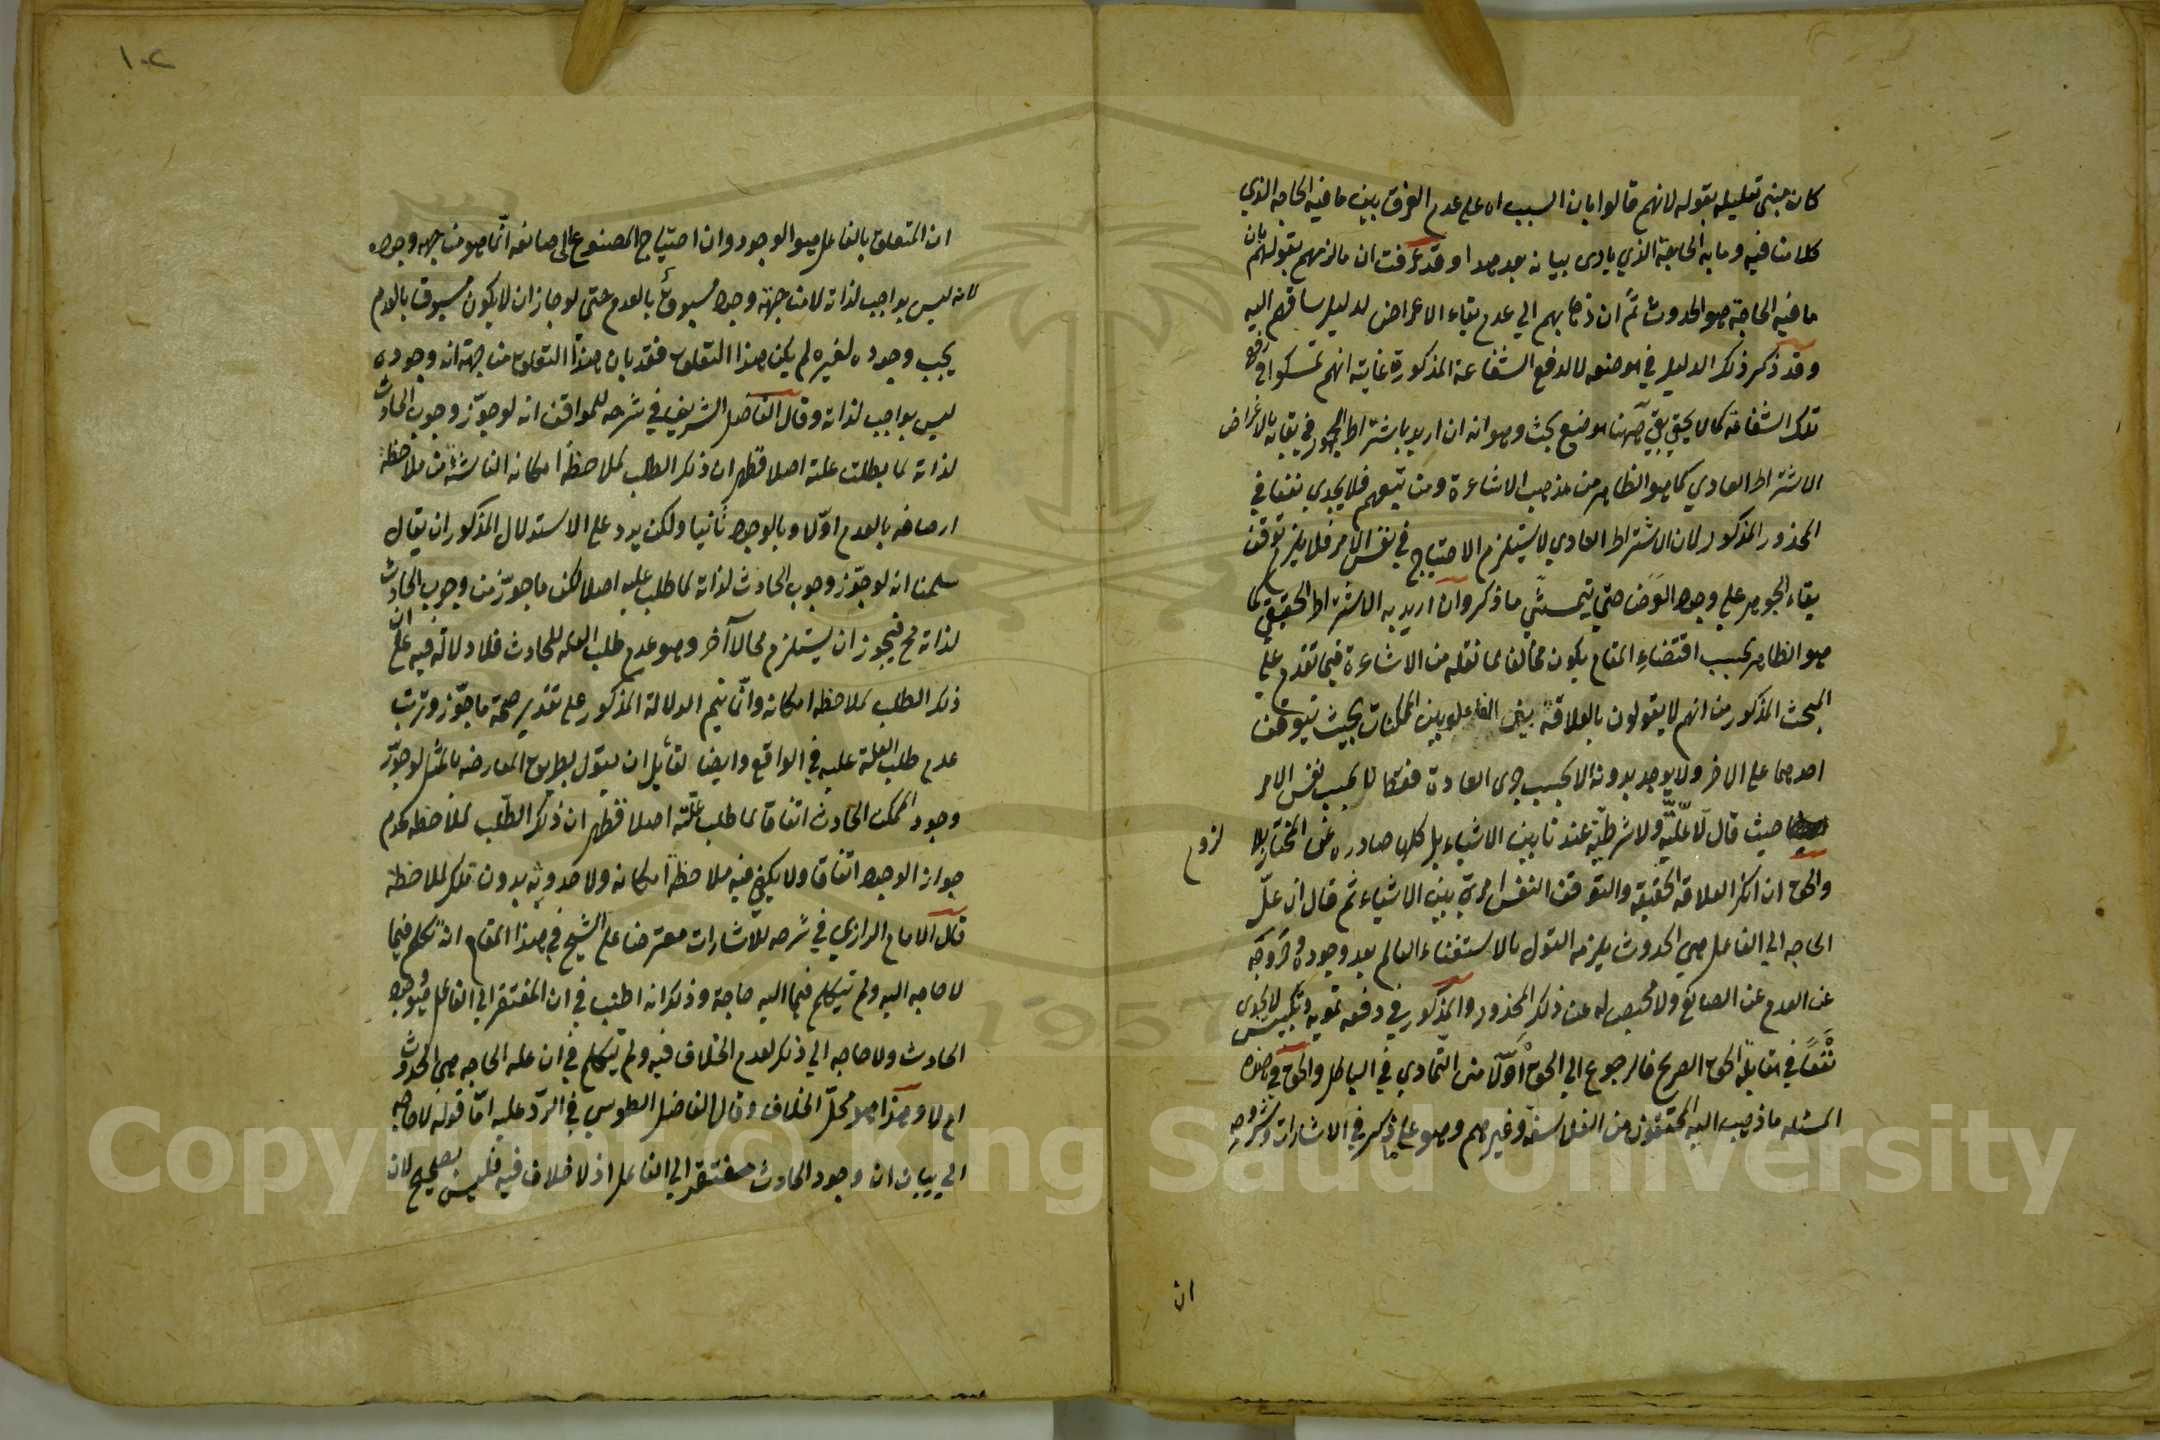 كان مبنى تعليله بقوله لانهم قالوا بان السبب اه على عدم الفرق بين ما فيه الحاجة الذي
كلامنا فيه وما به الحاجة الذي بيانه بعد هذا وقد عرفت ان ما لزمهم بقولهم بان
ما فيه الحاجة هو الحدوث ثم ان ذهابهم الي عدم بقاء الاعراض لدليل ساقهم اليه
وقد ذكر ذلك الدليل في موضعه لا لدفع الشناعة المذكورة غايته انهم تمسكوا في دفع
تلك الشناعة كما لا يخفى بقي ههنا موضع بحث وهو انه ان اريد باشتراط الجوهر في بقائه بالاعراض
الاشتراط العادي كما هو الظاهر من مذهب الاشاعرة ومن تبعهم فلا يجدي نفعا في
المحذور المذكور لان الاشتراط العادي لا يستلزم الاحتياج في نفس الامر فلا يلزم توقف
بقاء الجوهر علي وجود العرض حتي يتمشي ما ذكر وان اريد به الاشتراط الحقيقي كما
هو الظاهر بحسب اقتضاء المقام يكون مخالفا لما نقله من الاشاعرة فيما تقدم علي
المبحث المذكور من انهم لا يقولون بالعلاقة بين الفاعل وبين الممكنات بحيث يتوقف
احدهما علي الاخر ولا يوجد بدونه الا بحسب جري العادة لا بحسب نفس الامر
حيث قال لا علية ولا شرطية عندنا بين الاشياء بل كلها صادرة عن المختار بلا لزوم
والحق ان انكر العلاقة الحقيقة والتوقف النفس امرية بين الاشياء ثم قال ان علة
الحاجه الي الفاعل هي الحدوث يلزمه القول بالاستغناء العالم بعد وجوده وخروجه
عن العدم عن الصانع ولا محيص له عن ذلك المحذور والمذكور في دفعه تمويه وتلبيس لا يجدي
نفعا في مقابلة الحق الصريح فالرجوع الي الحق اولا من التمادي في الباطل والحق في هذه
المسئله ما ذهب اليه المحققون من الفلاسفة وغيرهم وهو علي ما في الاشارات وشروحه
ان
١٠٢
ان المتعلق بالفاعل هو الوجود وان احتياج المصنوع الى صانعه انما هو من جهة وجوده
لانه ليس بواجب لذاته لا من جهة وجوده مسبوقا بالعدم حتى لو جاز ان لا يكون مسبوقا بالعدم
يجب وجوده لغيره لم يكن هذا التعلق فقد بان هذا التعلق من جهة انه وجوده
ليس بواجب لذاته وقال الفاضل الشريف في شرحه للمواقف انه لو جوز وجوب الحادث
لذاته لما بطلت علة اصلا فظهر ان ذلك الطلب لملاحظة امكانه الناشئة من ملاحظة
اتصافه بالعدم اولا وبالوجود ثانيا ولكن يرد على الاستدلال المذكور ان يقال
سلمنا انه لو جوز وجوب الحادث لذاته لما طلب عليه اصلا لكن ما جوز من وجوب الحادث
لذاته مح فيجوز ان يستلزم محالا آخر وهو عدم طلب العلة للحادث فلا دلالة فيه على ان
ذلك الطلب لملاحظة امكانه وانما يتم الدلالة المذكور على تقدير صحة ما جوز وترتب
عدم طلب العلة عليه في الواقع وايضا لقائل ان يقول بطريق المعارضة بالمثل لو جوز
وجود الممكن الحادث اتفاقا لما طلب علته اصلا فظهر ان ذلك الطلب لملاحظة عدم
جواز الوجود اتفاقا ولا يكفي فيه ملاحظة امكانه ولا حدوثه بدون تلك الملاحظة
قال الامام الرازي في شرحه للاشارات معترضا على الشيخ في هذا المقام انه تكلم فيما
لا حاجه اليه ولم يتكلم فيما اليه حاجة وذلك انه اطنب في ان المفتقر الي الفاعل هو وجود
الحادث ولا حاجه الي ذلك لعدم الخلاف فيه ولم يتكلم في ان علة الحاجه هي الحدوث
ام لا وهذا هو محل الخلاف وقال الفاضل الطوسي في الرد عليه اما قوله لا حاجه
الي بيان ان وجود الحادث مفتقر الي الفاعل اذ لا خلاف فيه فليس بصحيح لان
Copyright © King Saud University
1957